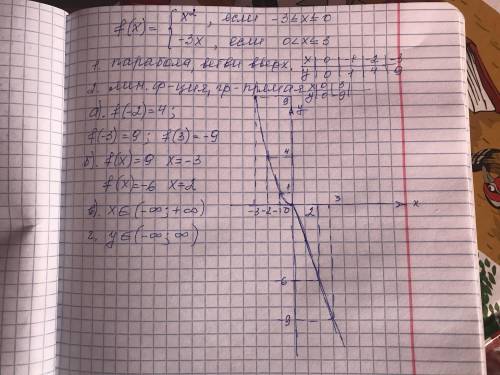 f(x) = { x², если -3≤x≤0
-3x, если 0<x≤3
1. парабола, ветви вверх. x | 0 | -1 | -2 | -3
y | 0 | 1 | 4 | 9
2. лин. ф-ция, гр-прямая x | 0 | 3
y | 0 | -9
а). f(-2)=4;
f(-3)=9; f(3)=-9
б). f(x)=9 x=-3
f(x)=-6 x=2
в). x∈(-∞;+∞)
г. y∈(-∞;∞)
9 y
4
1
-3 -2 -1 0 2 3 x
-6
-9